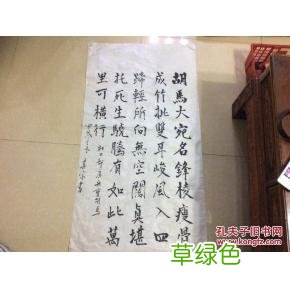 胡馬大宛名鋒棱瘦骨
成竹批雙耳峻風入四
蹄輕所向無空闊眞堪
托死生驍騰有如此萬
里可橫行 杜工部房兵曹胡馬
草绿色